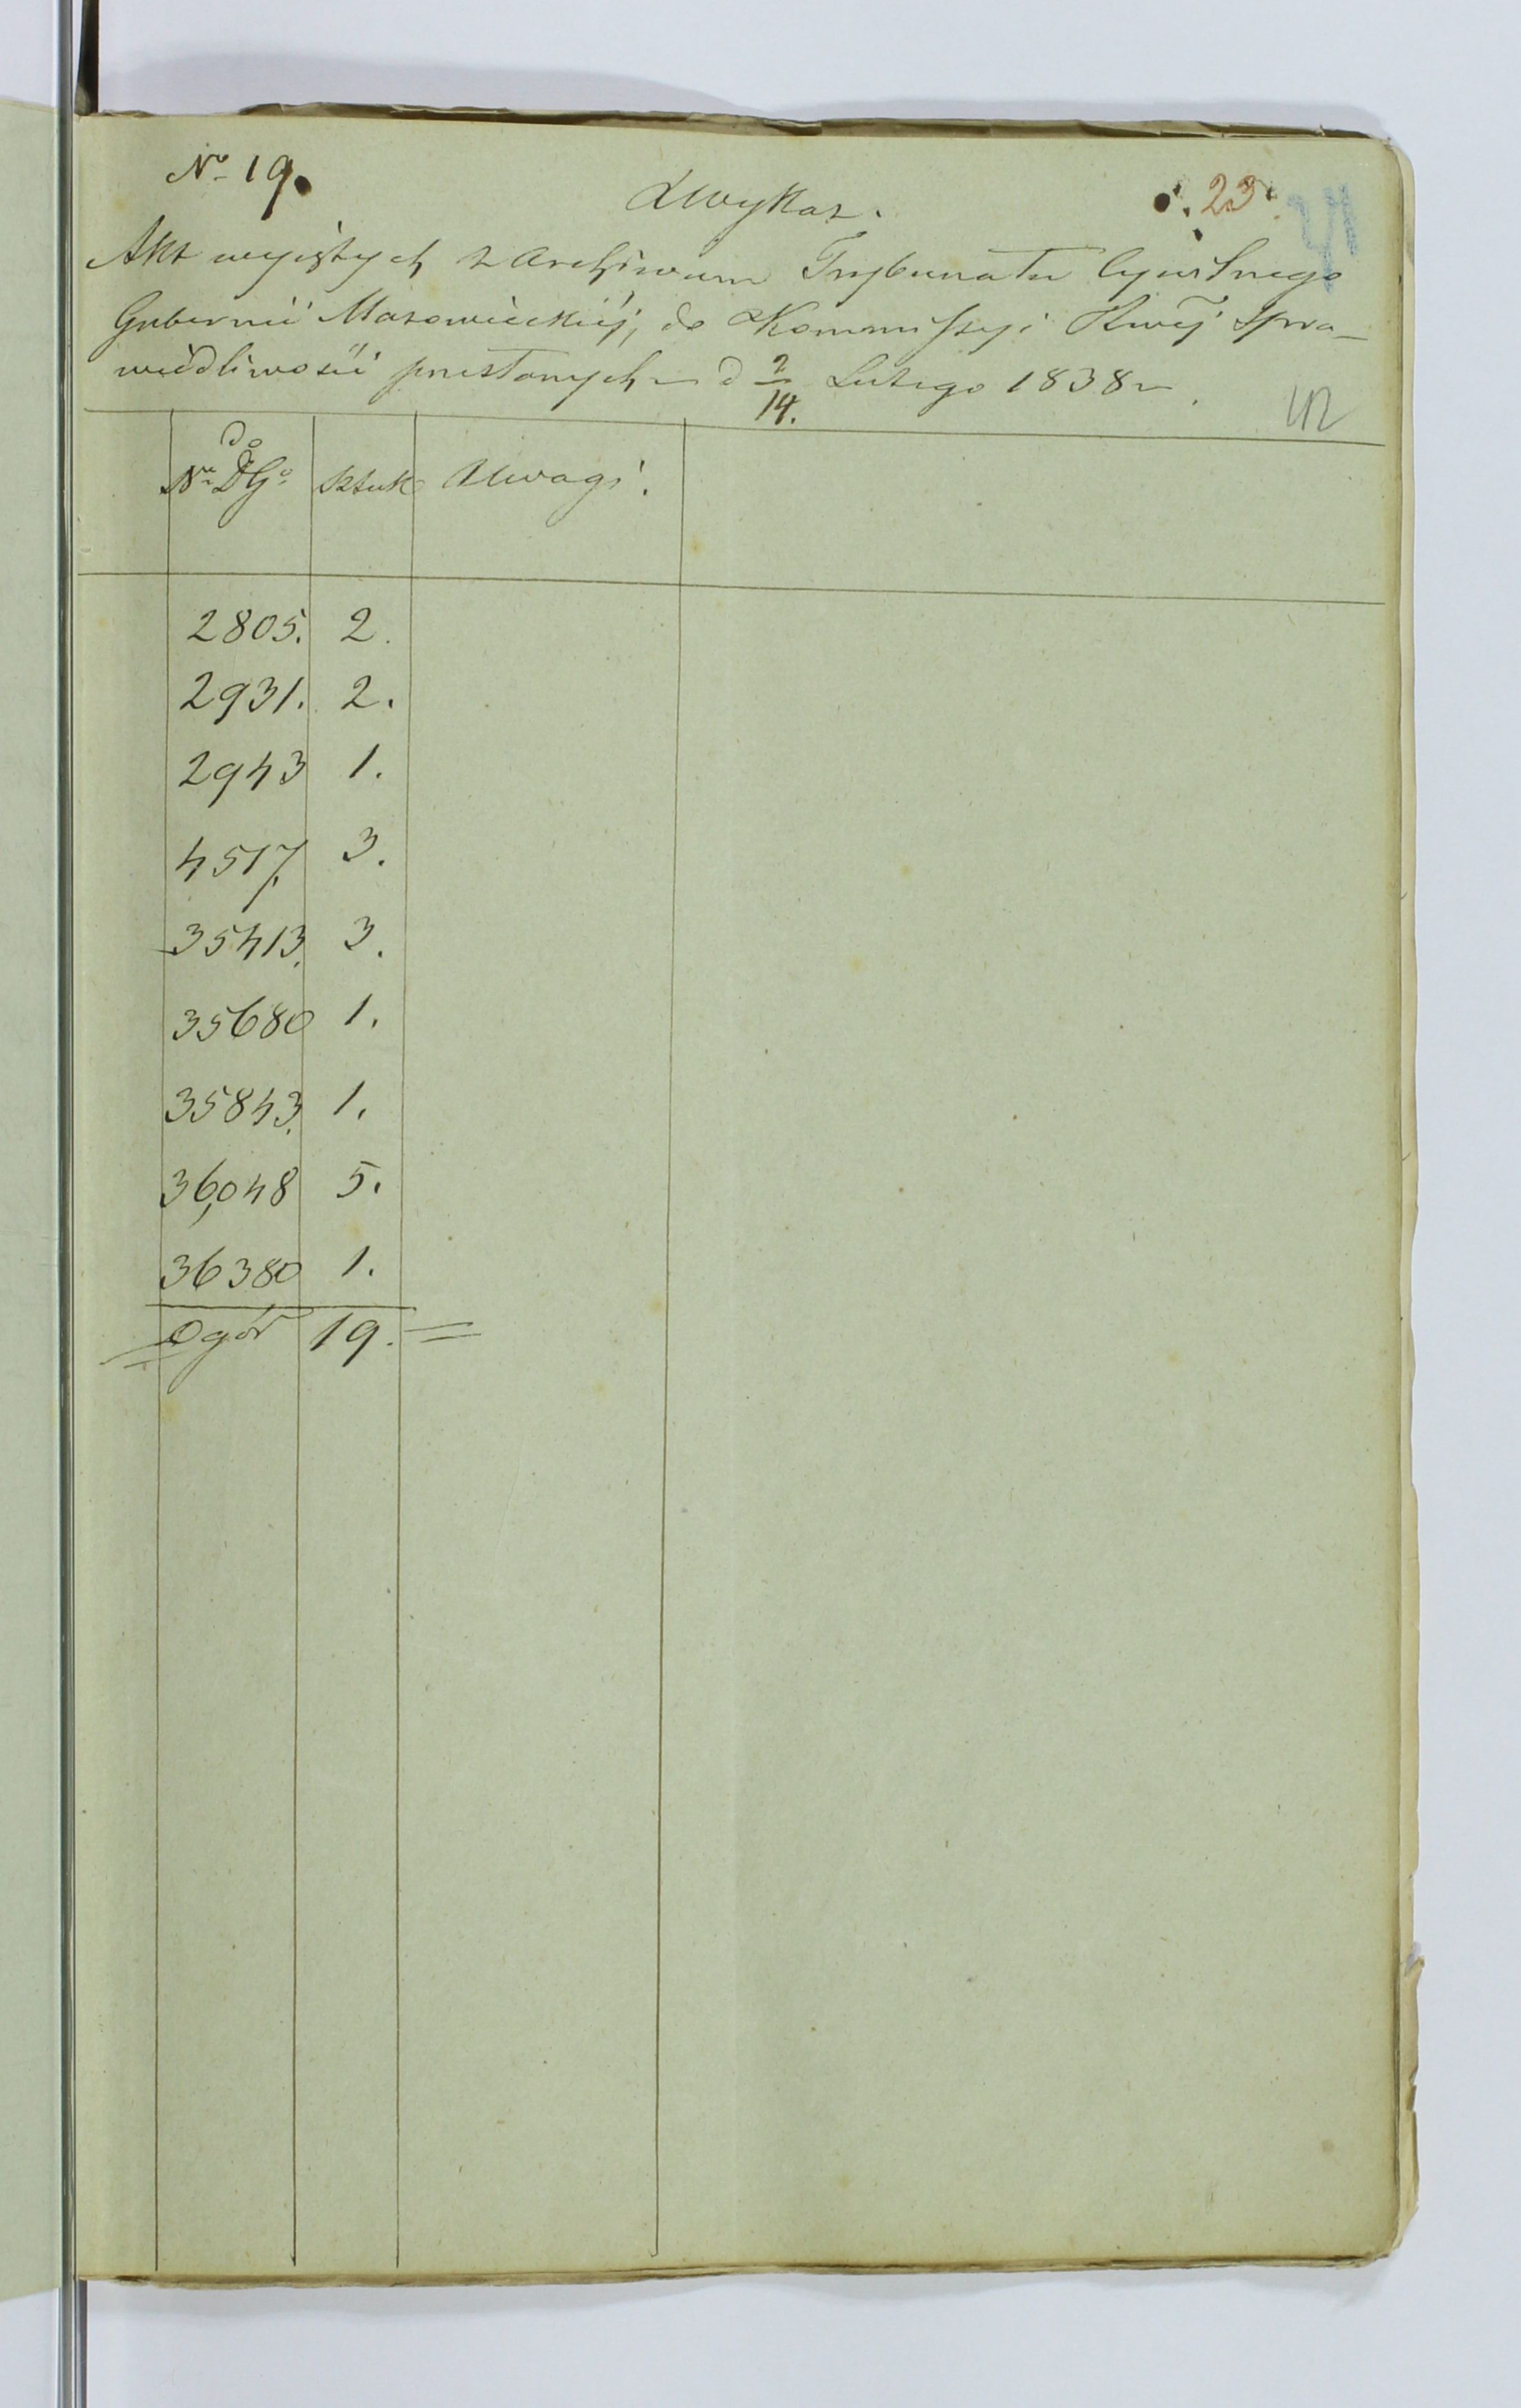 No 19.
23.
Wykaz.
Akt wyiętych z Archiwum Trybunału Cywilnego
Gubernii Mazowieckiéj, do Kommissyi Rwéj Spra-
wiedliwości przesłanych d 2/14. Lutego 1838 r.
42
do
No DGo sztuk Uwagi.
2805. 2.
2931. 2.
2943 1.
4517. 3.
35413. 3.
35680 1.
35843. 1.
36,048 5.
36380 1.
Ogół 19.